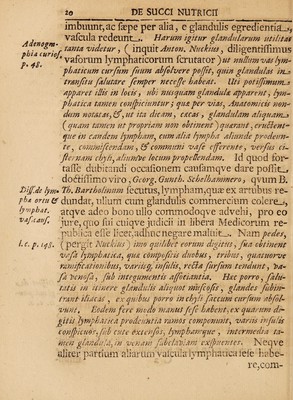 20 DE SUCCI NUTRICII
imbuunt, ac sæpe per alia, e glandulis egredientia,
vascula redeunt. Harum igitur glandularum utilitas
Adenogra-
phia curios.
p. 48.
tanta videtur, (inquit Anton. Nuckius, diligentissimus
vasorum lymphaticorum scrutator) ut nullum vas lym-
phaticum cursum suum absolvere possit, quin glandulas in
transitu salutare semper necesse habeat. Uti potissimum
apparet illis in locis, ubi nusquam glandula apparent, lym-
phatica tamen conspiciuntur; quæ per vias, Anatomicis non-
dum notatas, &, ut ita dicam, cæcas, glandulam aliquam
(quam tamen ut propriam non obtinent) quærant, eruct-
que in eandem lympham, cum alia lympha aliunde prodeun-
te, commiscendam, & communi vase efferente, versus ci-
sternam chyli, aliumve locum propellendam. Id quod for-
tasse dubitandi occasionem causamque dare possit
doctissimo viro, Georg. Gunth. Schelhammero, qvum B.
Diss. de lym-
pha ortu &
lymphat.
vas. caus.
Th. Bartholinum secutus, lympham, quæ ex artubus re-
dundat, ullum cum glandulis commercium colere
atqve adeo bono ullo commodoqve advehi, pro eo
jure, quo sui cuique judicii in libera Medicorum re-
publica esse licet, adduci negare maluit. Nam pedes,
l.c. p. 148.
(pergit Nuckius) imo quilibet eorum digitus, sua obtinent
vasa lymphatica, quæ compositis duobus, tribus, quatuorve
ramificationibus, variisq; insulis, recta sursum tendunt, va-
sa venosa, sub integumentis associantia. Hec porro, satu-
tatis in itinere glandulis aliquot minoribus, glandes subin-
trant iliacas, ex quibus porro in chyli saccum cursum absol-
vunt. Eodem fere modo manus sese habent, ex quarum di-
gitis lymphatica prodeuntia ramos componunt, variis insulis
conspicuos, sub cute extensos, lymphamque, intermedia ta-
men glandula, in venam subclaviam exspuentes. Neqve
aliter partium aliarum vascula lymphatica sese habe-
re, com-